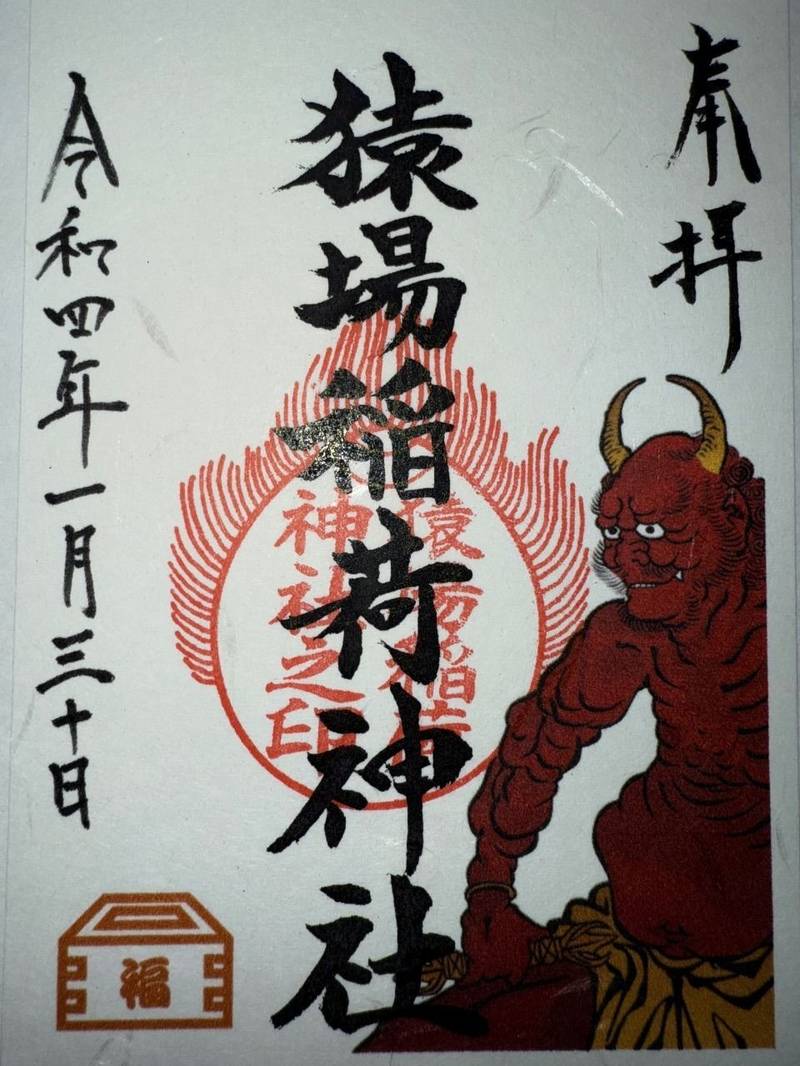 奉拝
猿場稲荷神社
猿場稲荷
神社之印
令和四年一月三十日
福